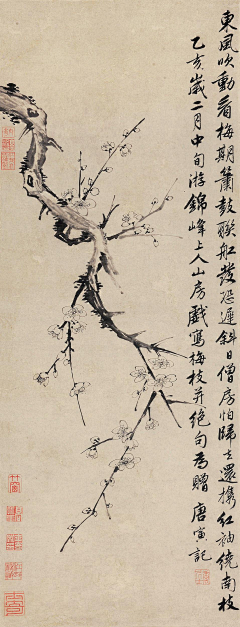 東風吹動看梅期簫鼓聯船發恐遲斜日僧房怕歸去還攜紅袖繞南枝
乙亥歲二月中旬游錦峰上人山房戲寫梅枝并絕句為贈 唐寅記